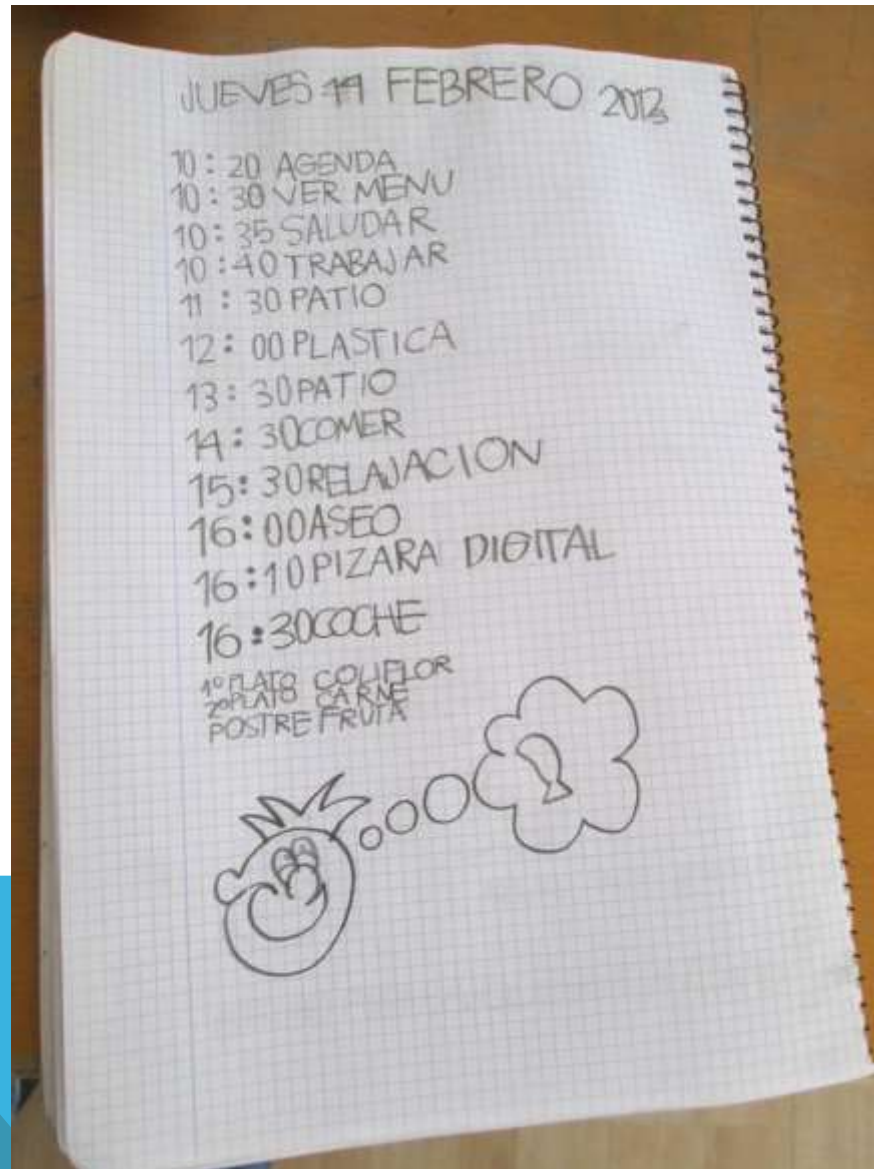 JUEVES 14 FEBRERO 2013
10:20 AGENDA
10:30 VER MENU
10:35 SALUDAR
10:40 TRABAJAR
11:30 PATIO
12:00 PLASTICA
13:30 PATIO
14:30 COMER
15:30 RELAJACION
16:00 ASEO
16:10 PIZARA DIGITAL
16:30 COCHE
1º PLATO COLIFLOR
2º PLATO CARNE
POSTRE FRUTA